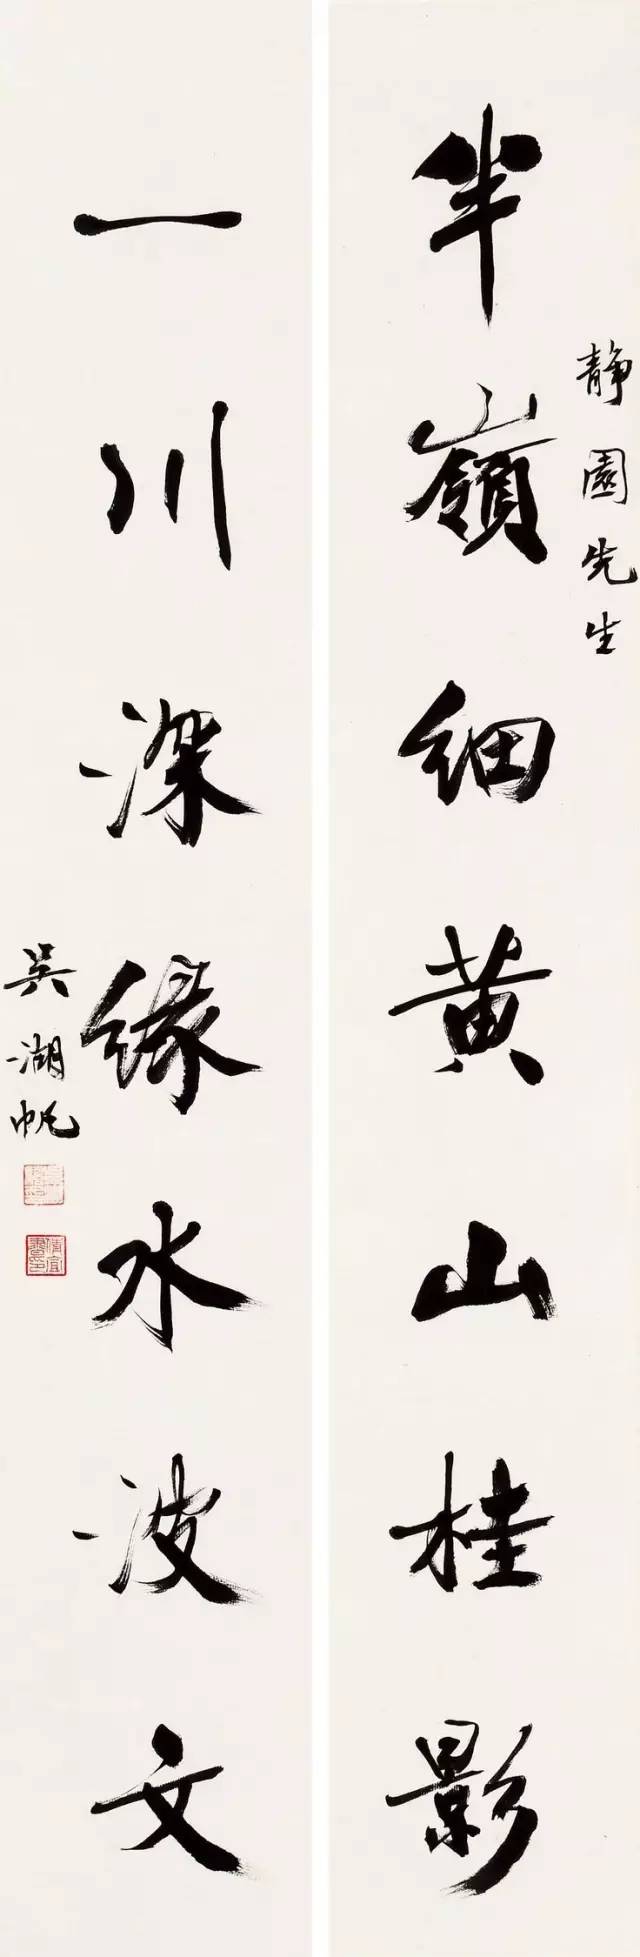 靜園先生
半嶺細黄山桂影
一川深綠水波文
吴湖帆